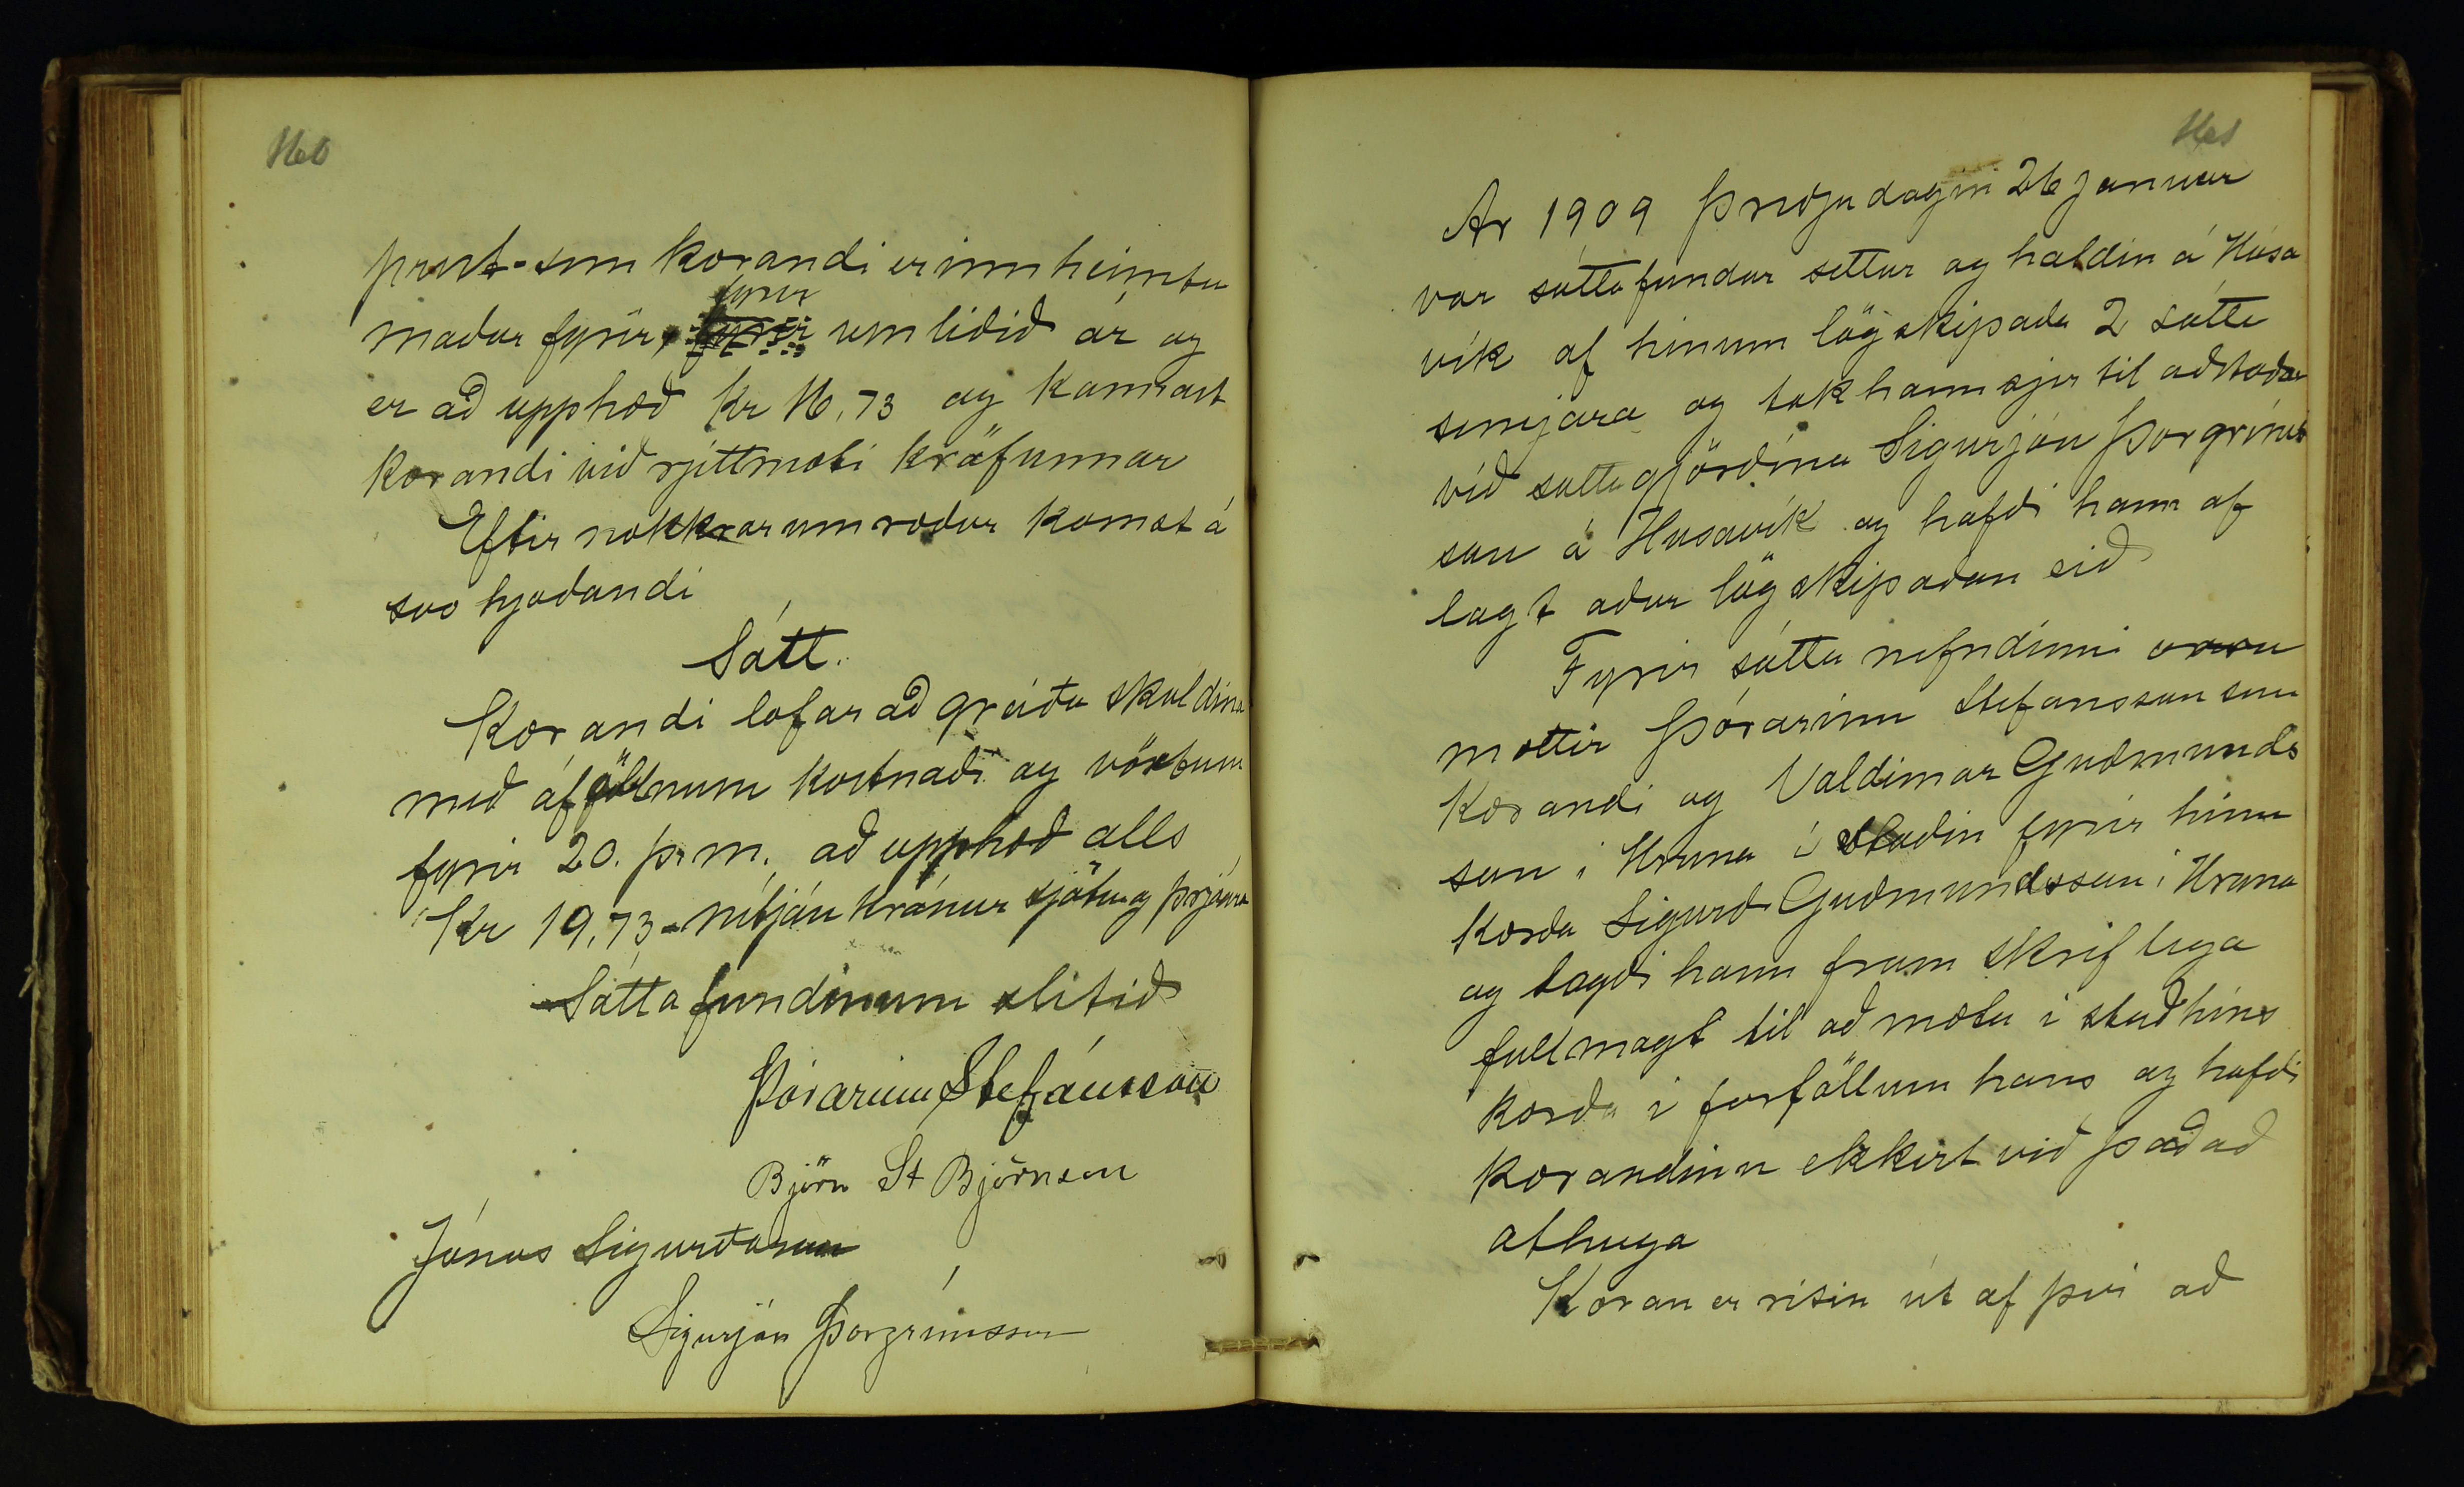 160
prest sem kærandi er innheimtu
fyrir
maður fyrir, fyrir umliðið ár og
er að upphæð kr 16,73 og kannast
kærandi við rjettmæti kröfunnar
Eftir nokkrar umræður komst á
svo hjoðandi
Sátt.
Kærandi lofar að greiða skuldina
með áföllnum kostnaði og vöxtum
fyrir 20. þ. m. að upphæð alls
Kr 19,73 - nítján krónur sjötug þrjáura
Sáttafundinum slitið
Þórarinn Stefánsson
Björn St Björnson
Jónas Sigurðsson
Sigurjón Þorgrímsson
161
Ar 1909 þriðjudagin 26 Januar
var sáttafundur settur og haldin á Húsa
vík af hinum lögskipaða 2 sátta
semjara og tok hann sjer til aðstoðar
við sáttagjörðina Sigurjón Þorgríms
son á Husavík og hafði hann af
lagt aður lögskipaðan eið
Fyrir sátta nefndinni voru
mættir Þórarinn Stefansson sem
Kærandi og Valdimar Guðmunds
son i Hruna í staðin fyrir hinn
kærða Sigurð Guðmundsson i Hruna
og lagði hann fram skriflega
fullmagt til að mæta i stað hins
kærða i forföllum hans og hafði
kærandinn ekkert við það að
athuga
Kæran er risin út af þvi að